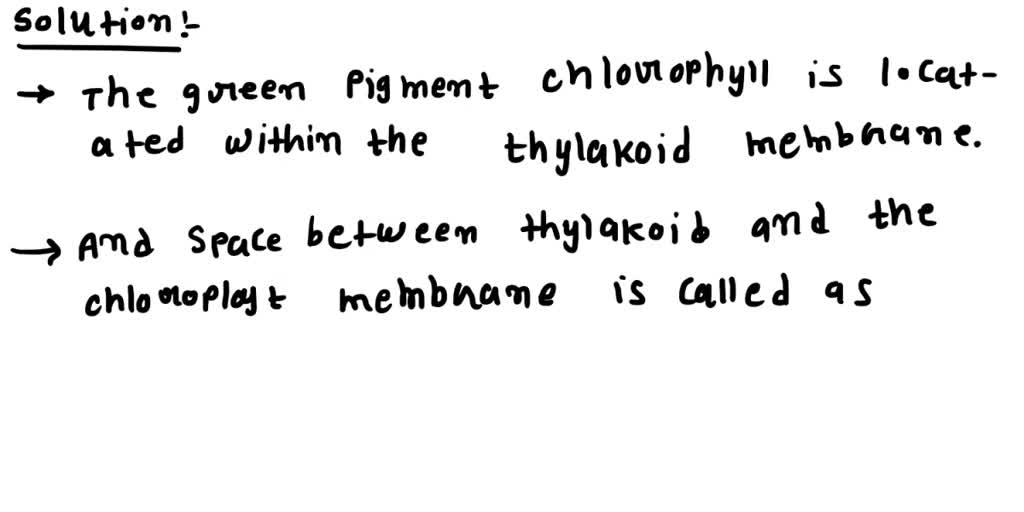 Solution:-
→ The green Pigment chlorophyll is locat-
ated within the thylakoid membrane.
→ And space between thylakoib and the
chloroplast membrane is called as